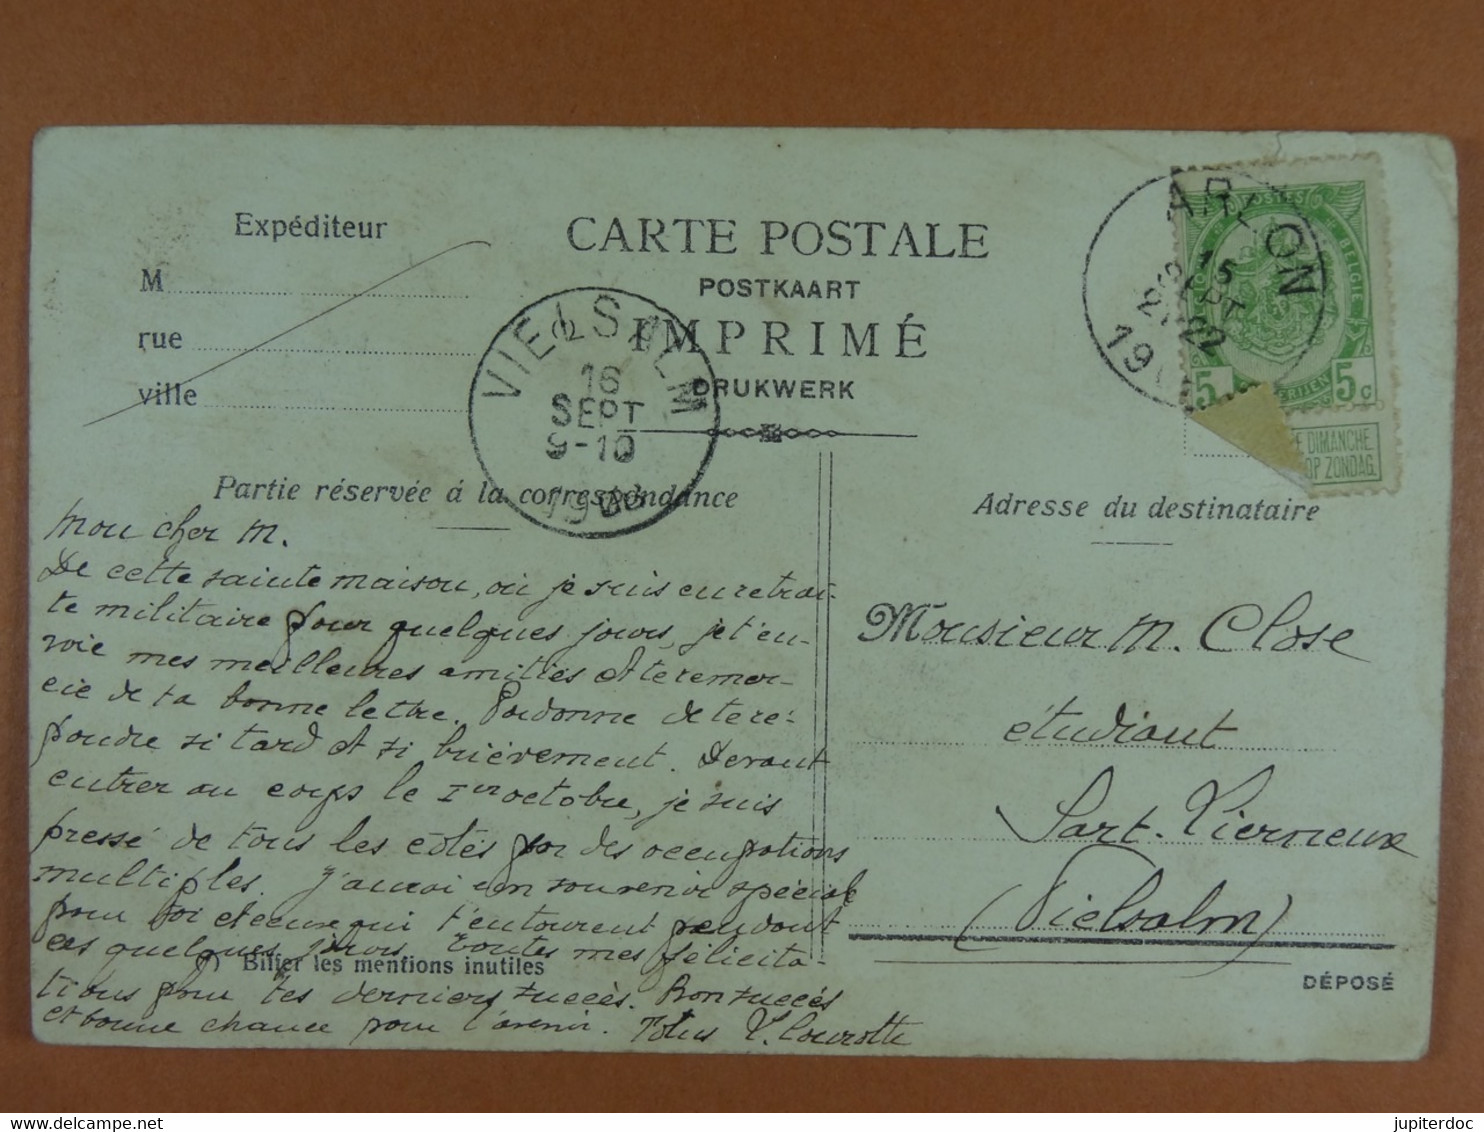 Expéditeur
M
rue
ville
CARTE POSTALE
POSTKAART
IMPRIMÉ
DRUKWERK
VIELSALM
16
SEPT
9-10
ARLON
15
SEPT
21-22
19
BELGIE
5c 5c
DIMANCHE
OP ZONDAG
Partie réservée á la correspondance
Adresse du destinataire
Mon cher M.
De cette sainte maison, où je suis en retrai-
te militaire pour quelques jours, je t'en-
voie mes meilleures amitiés et te remer-
cie de ta bonne lettre. Pardonne de te ré-
pondre si tard et si brièvement. Devant
entrer au corps le 1er octobre, je suis
pressé de tous les côtés par des occupations
multiples. J'aurai un souvenir spécial
pour toi et ceux qui t'entourent pendant
ces quelques jours. Toutes mes félicita-
(1) Biffer les mentions inutiles
tions pour tes derniers succès. Bon succès
et bonne chance pour l'avenir.
Monsieur M. Close
étudiant
Sart-Lierneux
(Vielsalm)
DÉPOSÉ
jupiterdoc